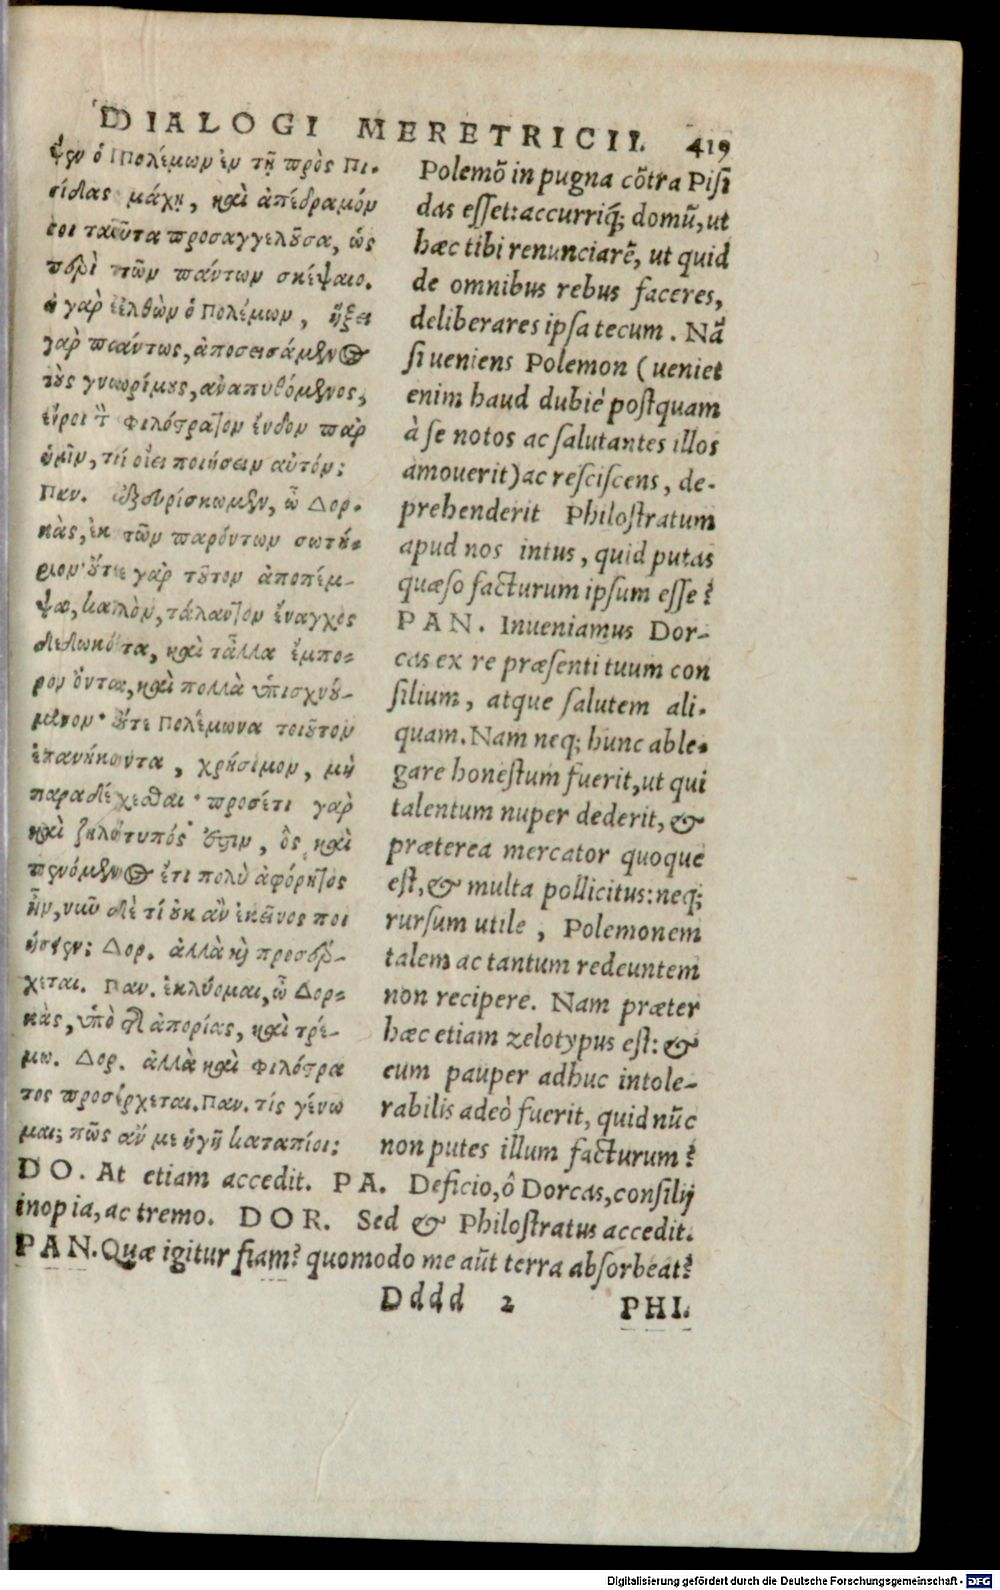 DIALOGI MERETRICII. 419
ψεν ὁ Πολέμων ἐν τῇ πρὸς Πι-
σίδας μάχῃ, καὶ ἀπέδραμόν
σοι ταῦτα προσαγγελοῦσα, ὡς
περὶ τῶν πάντων σκέψαιο.
εἰ γὰρ ἐλθὼν ὁ Πολέμων, ἥξει
γὰρ πάντως, ἀποσεισάμενος
τοὺς γνωρίμους, ἀναπυθόμενος,
εὕροι τὸν Φιλόστρατον ἔνδον παρ
ὑμῖν, τί οἴει ποιήσειν αὐτόν;
Παν. ἐξευρίσκωμεν, ὦ Δορ-
κὰς, ἐκ τῶν παρόντων σωτή-
ριον· οὔτε γὰρ τοῦτον ἀποπέμ-
ψαι, καλὸν, τάλαντον ἔναγχος
δεδωκότα, καὶ τἆλλα ἔμπο-
ρον ὄντα, καὶ πολλὰ ὑπισχνού-
μενον· οὔτε Πολέμωνα τοιοῦτον
ἐπανήκοντα, χρήσιμον, μὴ
παραδέχεσθαι· προσέτι γὰρ
καὶ ζηλότυπός ἐστιν, ὃς καὶ
πενόμενος ἔτι πολὺ ἀφόρητος
ἦν, νῦν δὲ τί οὐκ ἂν ἐκεῖνος ποι
ήσειεν; Δορ. ἀλλὰ καὶ προσέρ-
χεται. Παν. ἐκλύομαι, ὦ Δορ-
κὰς, ὑπὸ τῆς ἀπορίας, καὶ τρέ-
μω. Δορ. ἀλλὰ καὶ Φιλόστρα
τος προσέρχεται. Παν. τίς γένω
μαι; πῶς ἄν με ἡ γῆ καταπίοι;
Polemõ in pugna cõtra Pisi
das esset: accurriq́; domũ, ut
hæc tibi renunciarẽ, ut quid
de omnibus rebus faceres,
deliberares ipsa tecum. Nã
si ueniens Polemon (ueniet
enim haud dubiè postquam
à se notos ac salutantes illos
amouerit) ac resciscens, de-
prehenderit Philostratum
apud nos intus, quid putas
quæso facturum ipsum esse?
PAN. Inueniamus Dor-
cas ex re præsenti tuum con
silium, atque salutem ali-
quam. Nam neq; hunc able-
gare honestum fuerit, ut qui
talentum nuper dederit, &
præterea mercator quoque
est, & multa pollicitus: neq;
rursum utile, Polemonem
talem ac tantum redeuntem
non recipere. Nam præter
hæc etiam zelotypus est: &
cum pauper adhuc intole-
rabilis adeò fuerit, quid nũc
non putes illum facturum?
DO. At etiam accedit. PA. Deficio, ô Dorcas, consilij
inopia, ac tremo. DOR. Sed & Philostratus accedit.
PAN. Quæ igitur fiam? quomodo me aũt terra absorbeat?
Dddd 2 PHI.
Digitalisierung gefördert durch die Deutsche Forschungsgemeinschaft - DFG